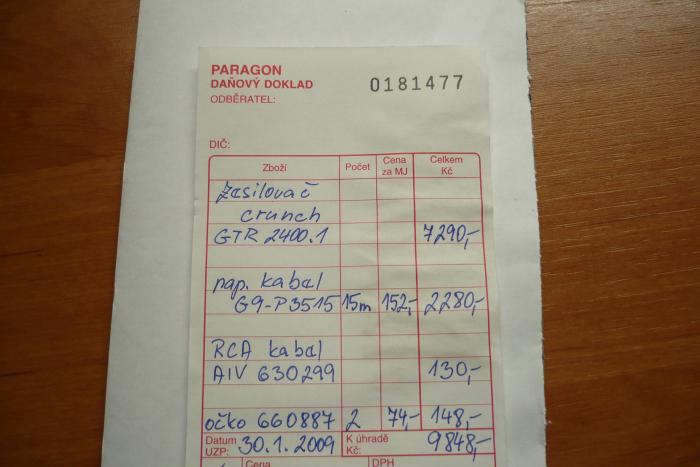 PARAGON
DAŇOVÝ DOKLAD 0181477
ODBĚRATEL:
DIČ:
Zboží Počet Cena za MJ Celkem Kč
Zesilovač
crunch
GTR 2400.1 7290,-
nap. kabal
G9-P3515 15m 152,- 2280,-
RCA kabal
AIV 630299 130,-
očko 660887 2 74,- 148,-
Datum UZP: 30.1.2009 K úhradě Kč: 9848,-
Cena DPH